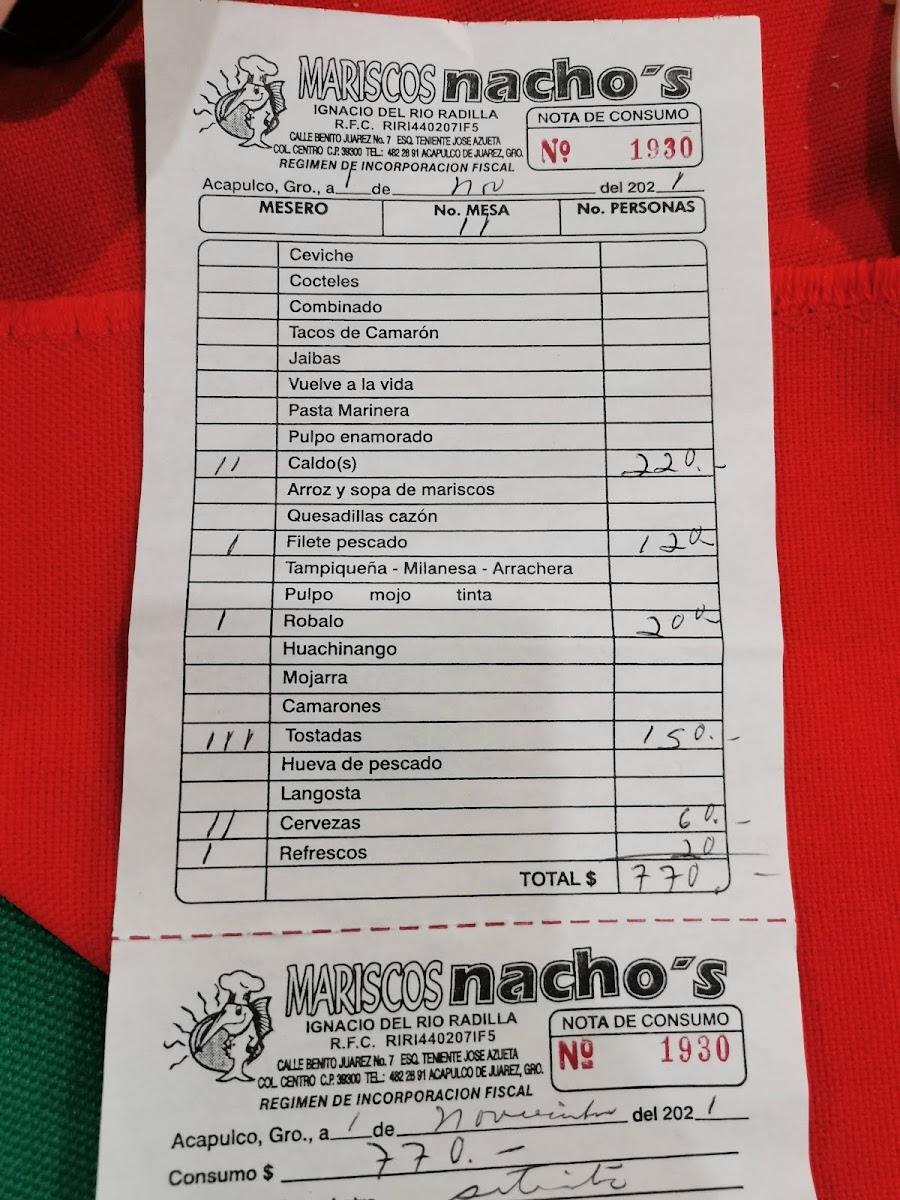 MARISCOS nacho´s
IGNACIO DEL RIO RADILLA
R.F.C. RIRI440207IF5
CALLE BENITO JUAREZ No. 7 ESQ. TENIENTE JOSE AZUETA
COL. CENTRO C.P. 39300 TEL.: 482 28 91 ACAPULCO DE JUAREZ, GRO.
REGIMEN DE INCORPORACION FISCAL
NOTA DE CONSUMO
Nº 1930
Acapulco, Gro., a 1 de Nov del 2021
MESERO No. MESA No. PERSONAS
11
Ceviche
Cocteles
Combinado
Tacos de Camarón
Jaibas
Vuelve a la vida
Pasta Marinera
Pulpo enamorado
11 Caldo(s) 220.-
Arroz y sopa de mariscos
Quesadillas cazón
1 Filete pescado 120-
Tampiqueña - Milanesa - Arrachera
Pulpo mojo tinta
1 Robalo 200-
Huachinango
Mojarra
Camarones
111 Tostadas 150.-
Hueva de pescado
Langosta
11 Cervezas 60.-
1 Refrescos 20
TOTAL $ 770.-
MARISCOS nacho´s
IGNACIO DEL RIO RADILLA
R.F.C. RIRI440207IF5
CALLE BENITO JUAREZ No. 7 ESQ. TENIENTE JOSE AZUETA
COL. CENTRO C.P. 39300 TEL.: 482 28 91 ACAPULCO DE JUAREZ, GRO.
REGIMEN DE INCORPORACION FISCAL
NOTA DE CONSUMO
Nº 1930
Acapulco, Gro., a 1 de Noviembre del 2021
Consumo $ 770.-